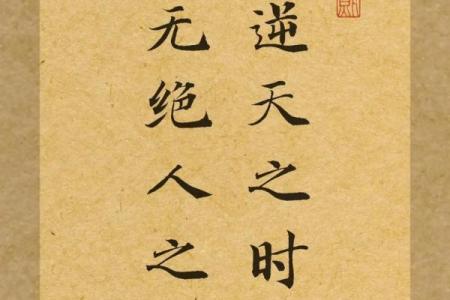 逆天之时
无绝人之